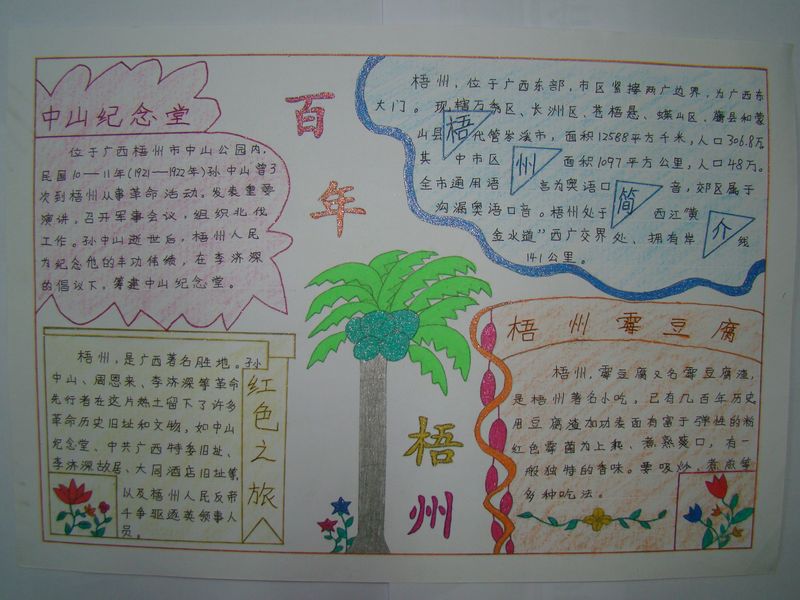 中山纪念堂
位于广西梧州市中山公园内，
民国10—11年(1921—1922年)孙中山曾3
次到梧州从事革命活动，发表重要
演讲，召开军事会议，组织北伐
工作。孙中山逝世后，梧州人民
为纪念他的丰功伟绩，在李济深
的倡议下，筹建中山纪念堂。
百
年
梧
州
梧州，位于广西东部，市区紧接两广边界，为广西东
大门。现辖万秀区、长洲区、苍梧县、蝶山区、藤县和蒙
山县 代管岑溪市，面积12588平方千米，人口306.8万
其 中市区 面积1097平方公里，人口48万。
全市通用语 言为粤语口 音，郊区属于
沟漏粤语口音。梧州处于 西江“黄
金水道”西广交界处、拥有岸 线
141公里。
梧
州
简
介
梧州，是广西著名胜地。孙
中山、周恩来、李济深等革命
先行者在这片热土留下了许多
革命历史旧址和文物，如中山
纪念堂、中共广西特委旧址、
李济深故居、大同酒店旧址等，
以及梧州人民反帝
斗争驱逐英领事人
员。
红色之旅
梧州霉豆腐
梧州，霉豆腐又名霉豆腐渣，
是梧州著名小吃，已有几百年历史
用豆腐渣加功表面有富于弹性的粉
红色霉菌为上乘，煮熟爽口，有一
般独特的香味。要吸炒，煮煎等
多种吃法。